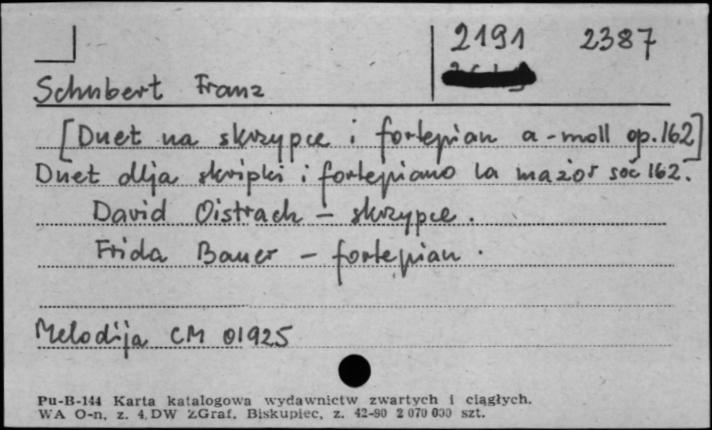 2191 2387
Schubert Franz
[Duet na skrzypce i fortepian a-moll op. 162]
Duet dlja skripki i fortepiano la mažor soč 162.
David Oistrach – skrzypce.
Frida Bauer – fortepian.
Melodija CM 01925
Pu-B-144 Karta katalogowa wydawnictw zwartych i ciągłych.
WA O-n, z. 4, DW ZGraf. Biskupiec, z. 42-90 2 070 000 szt.